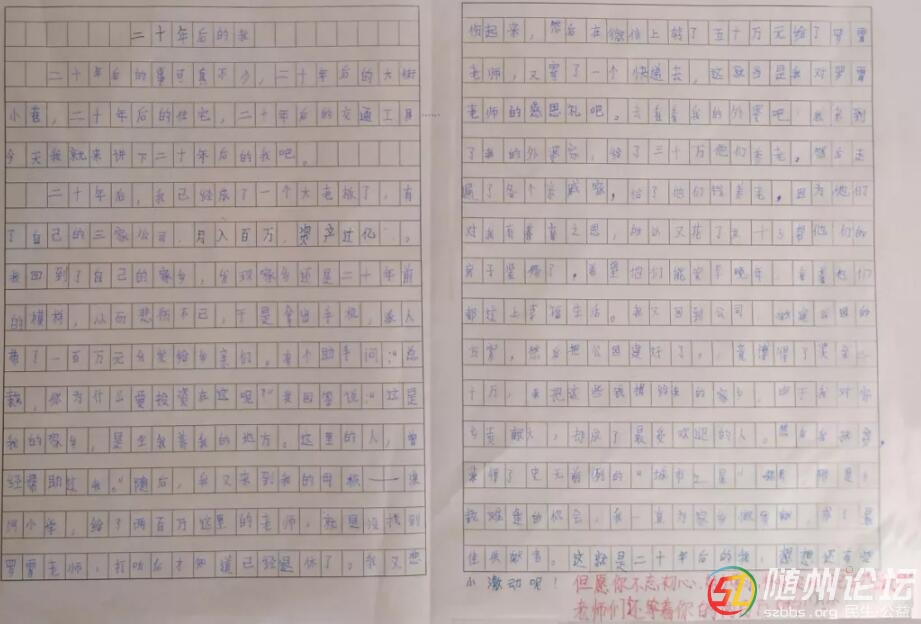 二十年后的我
二十年后的事可真不少，二十年后的大街
小巷，二十年后的住宅，二十年后的交通工具……
今天我就来讲下二十年后的我吧。
二十年后，我已经成了一个大老板了，有
了自己的三家公司，月入百万，资产过亿
我回到了自己的家乡，发现家乡还是二十年前
的模样，从而悲伤不已，于是拿出手机，派人
带了一百万元分发给乡亲们。有个助手问：“总
裁，你为什么要投资在这呢？”我回答说：“这是
我的家乡，是生我养我的地方。这里的人，曾
经帮助过我。”随后，我又来到我的母校——
河小学，给了两百万这里的老师，就是没找到
罗雷老师，打听后才知道已经退休了。我又想
起来，然后在微信上转了五十万元给了罗雷
老师，又寄了一个快递去，这就当是我对罗雷
老师的意思礼吧。去看看我的外婆吧！我来到
了我的外婆家，给了三十万他们养老。然后走
遍了各个亲戚家，给了他们钱养老，因为他们
对我有养育之恩，所以又花了五十万帮他们的
房子装修了，希望他们能安享晚年，看着他们
都过上幸福生活。我又回到公司，
然后把公园建好了，竟博得了奖金
十万，我把这些钱捐给我的家乡，由于我对家
乡贡献大，却成了最受欢迎的人。
获得了史无前例的“城市之星”
我难逢的机会，我一直为家乡做贡献，成了最
佳贡献者。这就是二十年后的我，想想还有些
小激动呢！
但愿你不忘初心，
老师们还等着你
随州论坛
szbbs.org 民生·公益